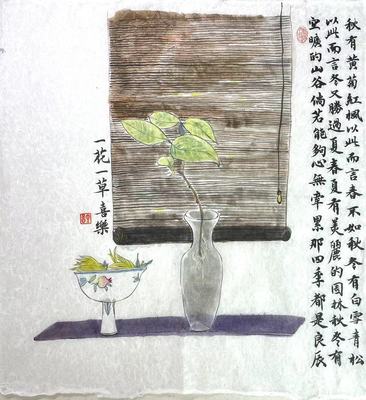 秋有黄菊紅楓以此而言春不如秋冬有白雪青松
以此而言冬又勝過夏春夏有美麗的园林秋冬有
空曠的山谷倘若能夠心無牽累那四季都是良辰
一花一草喜樂